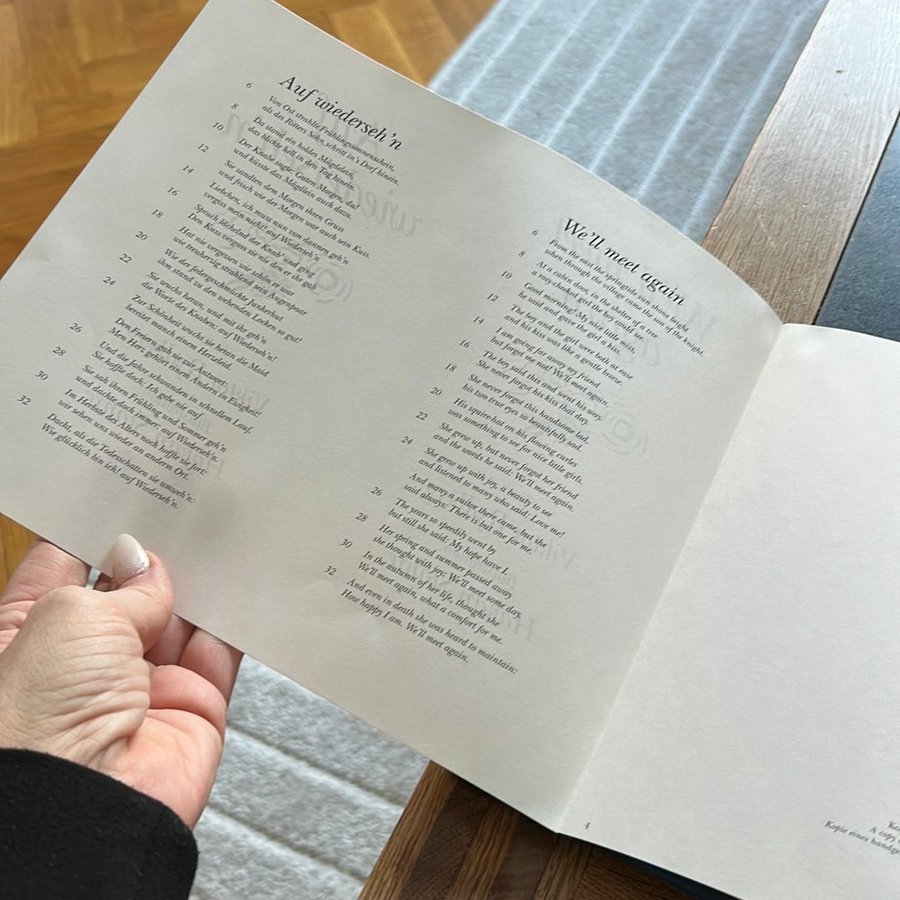 Auf wiederseh'n
6 Von Ost strahlte Frühlingssonnenschein,
als des Ritters Sohn schritt in's Dorf hinein.
8 Da stand ein holdes Mägdelein,
das blickte hell in den Tag hinein.
10 Der Knabe sagte: Guten Morgen, du!
und küsste das Mägdlein auch dazu.
12 Sie sandten dem Morgen ihren Gruss
und frisch wie der Morgen war auch sein Kuss.
14 Liebchen, ich muss nun von dannen geh'n
vergiss mein nicht! auf Wiederseh'n
16 Sprach lächelnd der Knab' und ging
Den Kuss vergass sie nie den er ihr gab
18 Hat nie vergessen wie schön er war
wie treuherzig strahlend sein Augenpaar
20 Wie der Junkerhut
ihm stand zu den wehenden Locken so gut!
22 Sie wuchs heran, und mit ihr geh'n
die Worte des Knaben: auf Wiederseh'n!
24 Zur Schönheit wuchs sie heran die Maid
bereitet manch einem Herzeleid.
Den Freiern gab sie zur Antwort:
Mein Herz gehört einem Andern in Ewigkeit!
26 Und die Jahre schwanden in schnellem Lauf,
Sie hoffte doch: Ich gebe nie auf
28 Sie sah ihren Frühling und Sommer geh'n
und dachte doch immer: auf Wiederseh'n.
30 Im Herbste des Alters noch hoffte sie fort:
wir sehen uns wieder an anderm Ort.
32 Dacht, als die Todesschatten sie umweh'n:
Wie glücklich bin ich! auf Wiederseh'n.
We'll meet again
6 From the east the springtide sun shone bright
when through the village came the son of the knight.
8 At a cabin door, in the shelter of a tree
a rosy-cheeked girl the boy could see.
10 Good morning! My nice little miss,
he said and gave the girl a kiss.
12 The boy and the girl were both at ease
and his kiss was like a gentle breeze.
14 I am going far away my friend
but forget me not! We'll meet again.
16 The boy said this and went his way.
She never forgot his kiss that day.
18 She never forgot this handsome lad,
his two true eyes so beautifully sad.
20 His squirrel hat on his flowing curles
was something to see for nice little girls.
22 She grew up, but never forgot her friend
and the words he said: We'll meet again.
24 She grew up with joy, a beauty to see
and listened to many who said: Love me!
And many a suitor there came, but she
said always: There is but one for me.
26 The years so speedily went by
but still she said: My hope have I.
28 Her spring and summer passed away
she thought with joy: We'll meet some day.
30 In the autumn of her life, thought she
We'll meet again, what a comfort for me.
32 And even in death she was heard to maintain:
How happy I am. We'll meet again.
4
A copy
Kopie eines